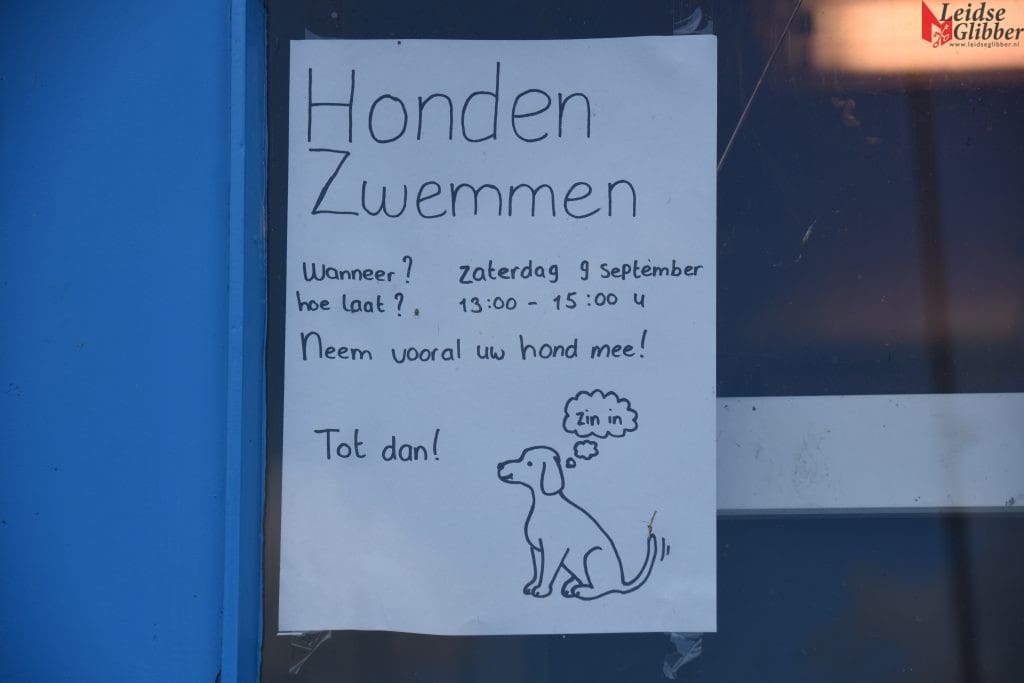 Leidse
Glibber
www.leidseglibber.nl
Honden
Zwemmen
Wanneer? zaterdag 9 september
hoe laat? 13:00 - 15:00 u
Neem vooral uw hond mee!
zin in
Tot dan!